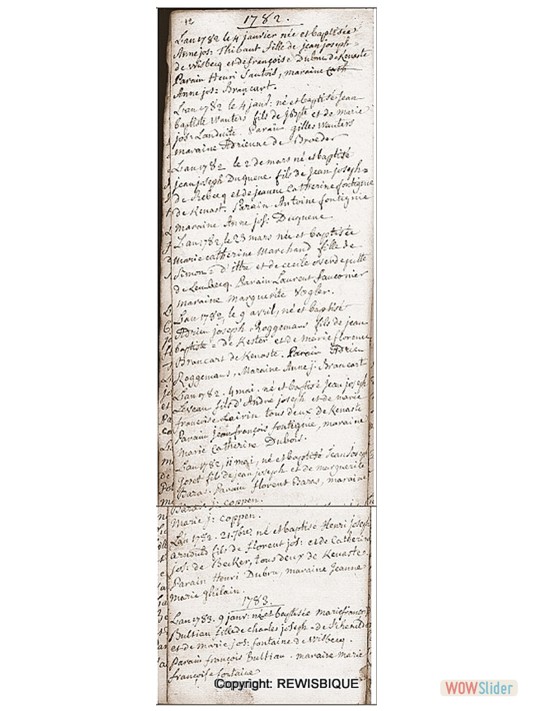 12 1782.
L'an 1782 le 4 janvier née et baptisée
Anne jos: Thibaut fille de jean joseph
de Wisbecq et de françoise Dubru de Kenaste
Parain Henri Santois, maraine
Anne jos: Brancart.
L'an 1782 le 4 né et baptisé jean
baptiste Wauters fils de et de marie
jos: Parain gilles Wauters
maraine Adrienne de Broeder
L'an 1782 le 2 de mars né et baptisé
jean joseph Duquene fils de jean joseph
de Rebecq et de jeanne Catherine fontignie
de Kenast. Parain Antoine fontignie
maraine Anne jos: Duquene
L'an 1782 le 23 mars née et baptisée
Marie Catherine Marchand fille de
Simon d'ittre et de cecile
de Lembecq. Parain Laurent fauconier
maraine marguerite
L'an 1782. le 9 avril, né et baptisé
Adrien joseph Roggemans fils de jean
baptiste de Kester et de marie florence
Brancart de Kenaste. Parain Adrien
Roggemans. Maraine Anne j: Brancart
L'an 1782. 4 mai. né et baptisé jean joseph
fils d'André joseph et de marie
françoise tous deux de Kenaste
Parain jean françois fontignie, maraine
Marie Catherine Dubois.
L'an 1782, 11 mai, né et baptisé jean joseph
fils de jean joseph et de marguerite
Baras. Parain florent Baras, maraine
Marie j: coppen.
Marie j: coppen.
L'an 1782. 21. né et baptisé Henri joseph
fils de florent jos: et de Catherine
jos: de Becker, tous deux de Kenaste.
Parain Henri Dubru, maraine jeanne
marie ghilain.
1783.
L'an 1783. 9 janv: née et baptisée marie françoise
Bultiau fille de charles joseph de
et de marie jos: fontaine de Wisbecq.
Parain françois Bultiau. maraine marie
françoise fontaine
Copyright: REWISBIQUE
WOWSlider